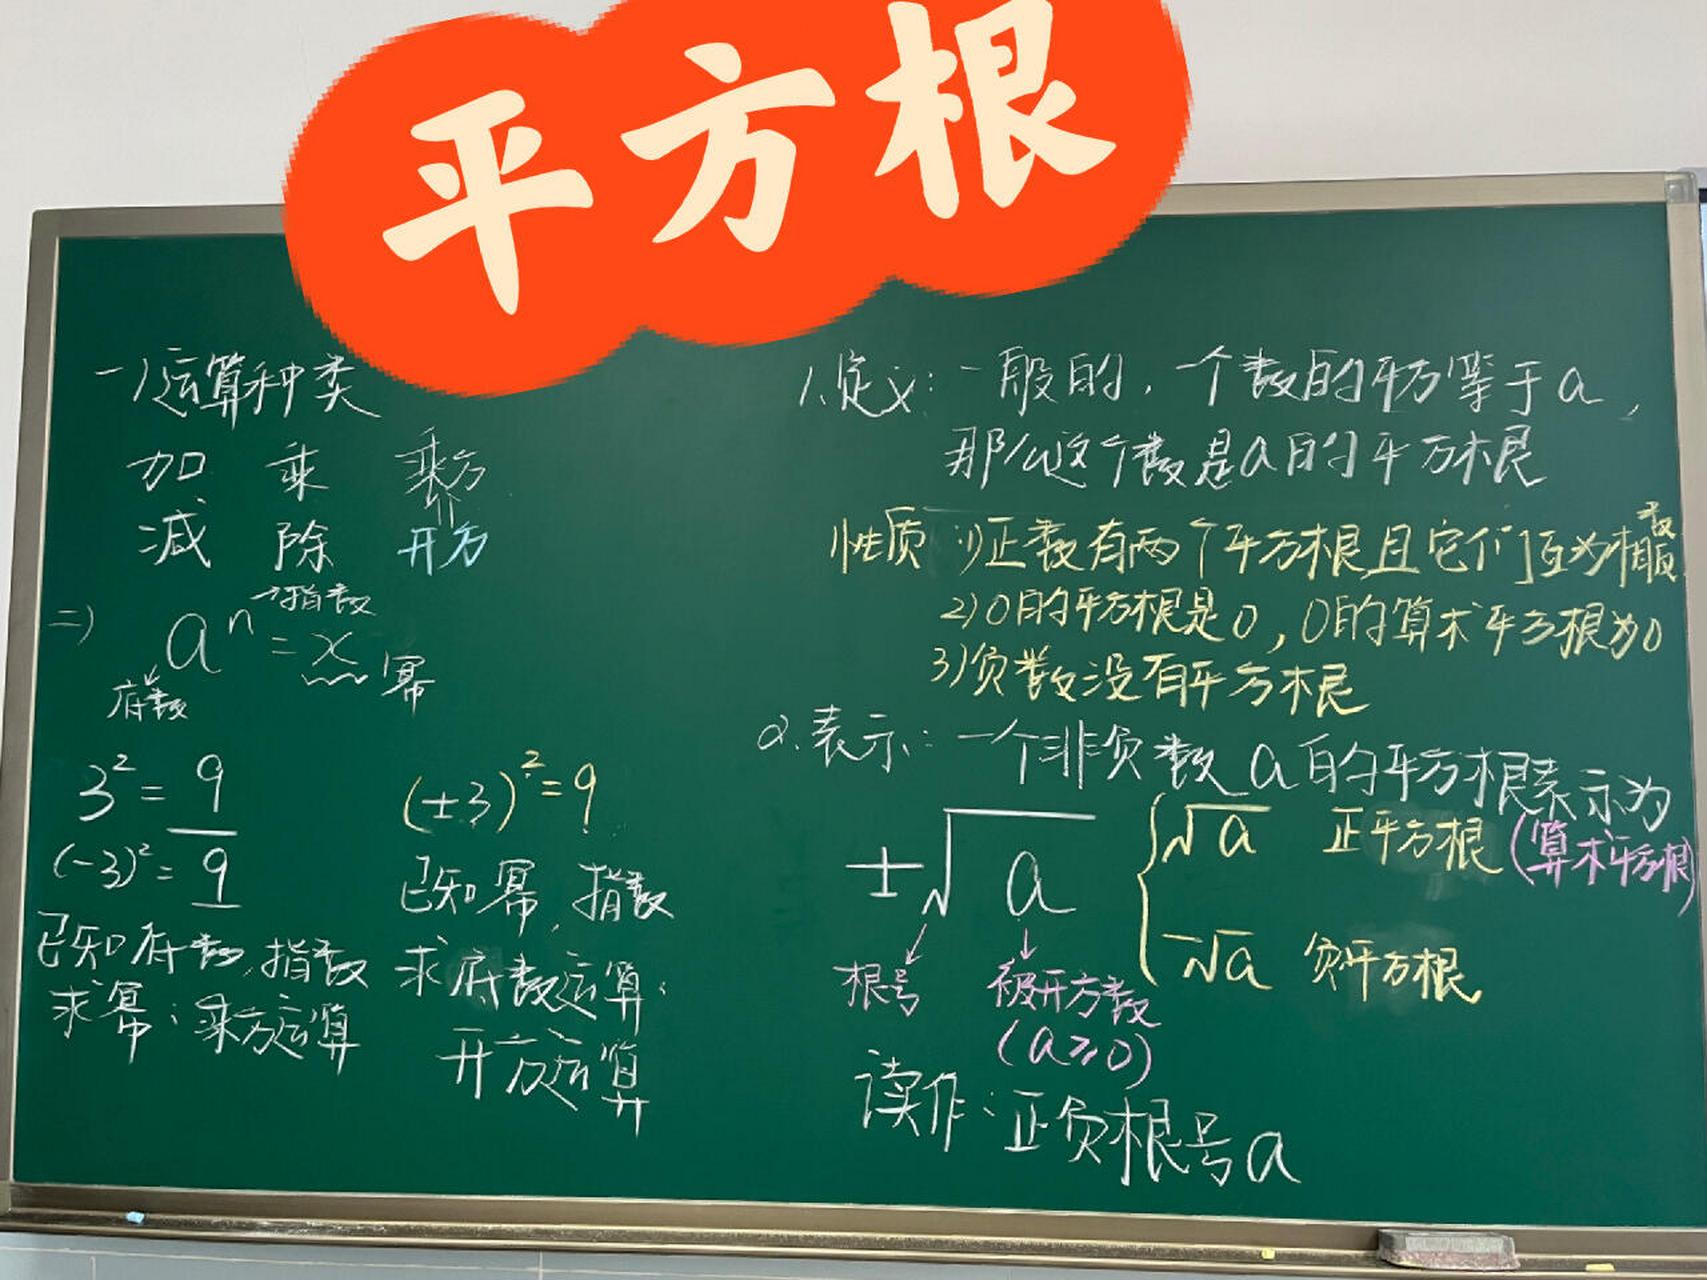 平方根
一、运算种类
加 乘 乘方
减 除 开方
二) aⁿ = x 幂
→指数
底数
3² = 9
(-3)² = 9
已知底数,指数
求幂:乘方运算
(±3)² = 9
已知幂,指数
求底数运算:
开方运算
1.定义:一般的,一个数的平方等于a,
那么这个数是a的平方根
性质 1)正数有两个平方根且它们互为相反数
2)0的平方根是0,0的算术平方根为0
3)负数没有平方根
2.表示:一个非负数a的平方根表示为
±√a { √a 正平方根(算术平方根)
-√a 负平方根
根号 被开方数
(a≥0)
读作:正负根号a